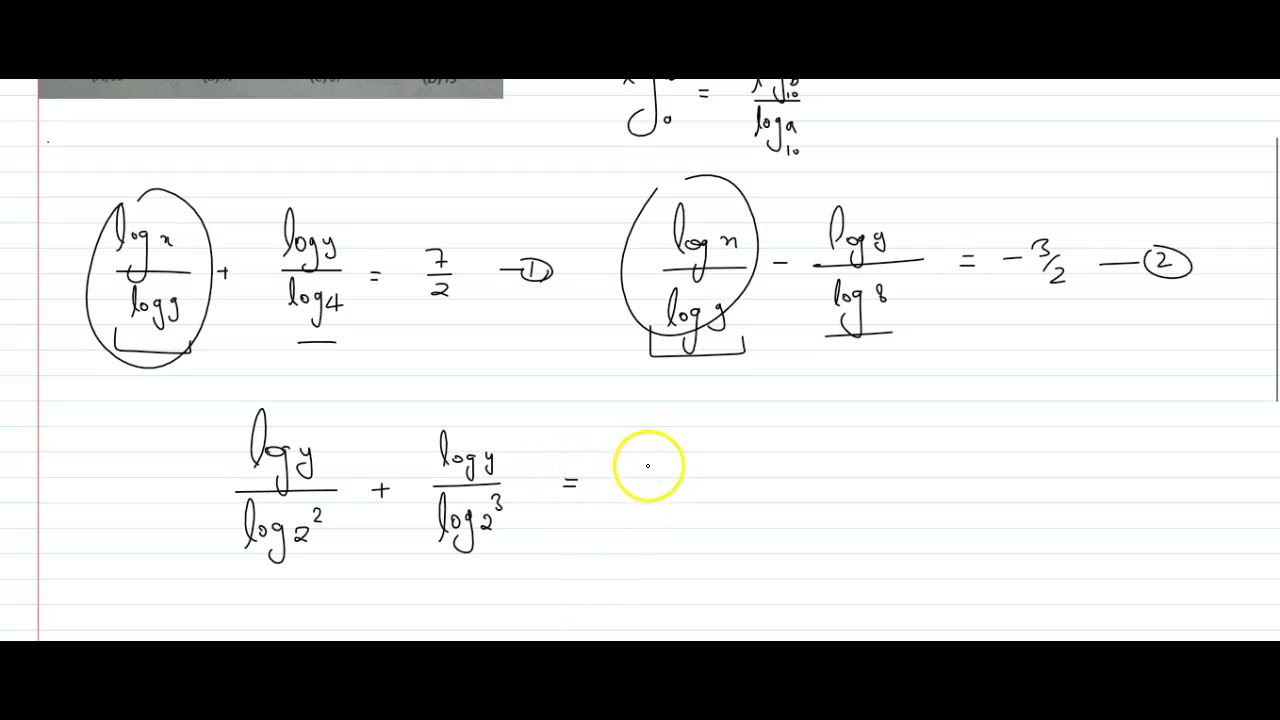 = log b 10 / log a 10
log x / log 9 + log y / log 4 = 7/2 — ①
log x / log 9 - log y / log 8 = -3/2 — ②
log y / log 2² + log y / log 2³ =